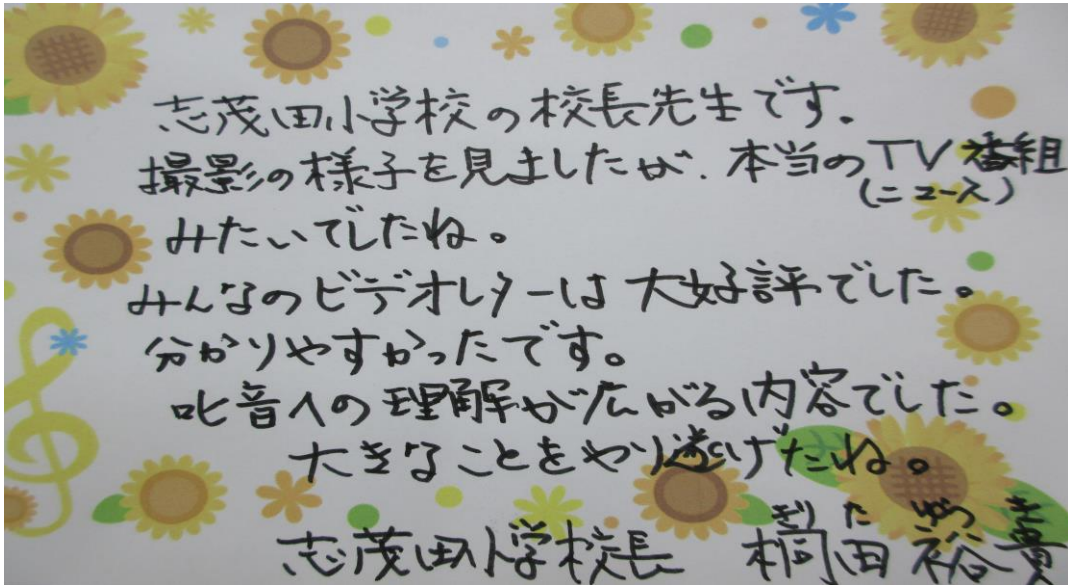 志茂田小学校の校長先生です。
撮影の様子を見ましたが、本当のTV番組
(ニュース)
みたいでしたね。
みんなのビデオレターは大好評でした。
分かりやすかったです。
吃音への理解が広がる内容でした。
大きなことをやり遂げたね。
きり た ゆう き
志茂田小学校長 桐田 裕貴